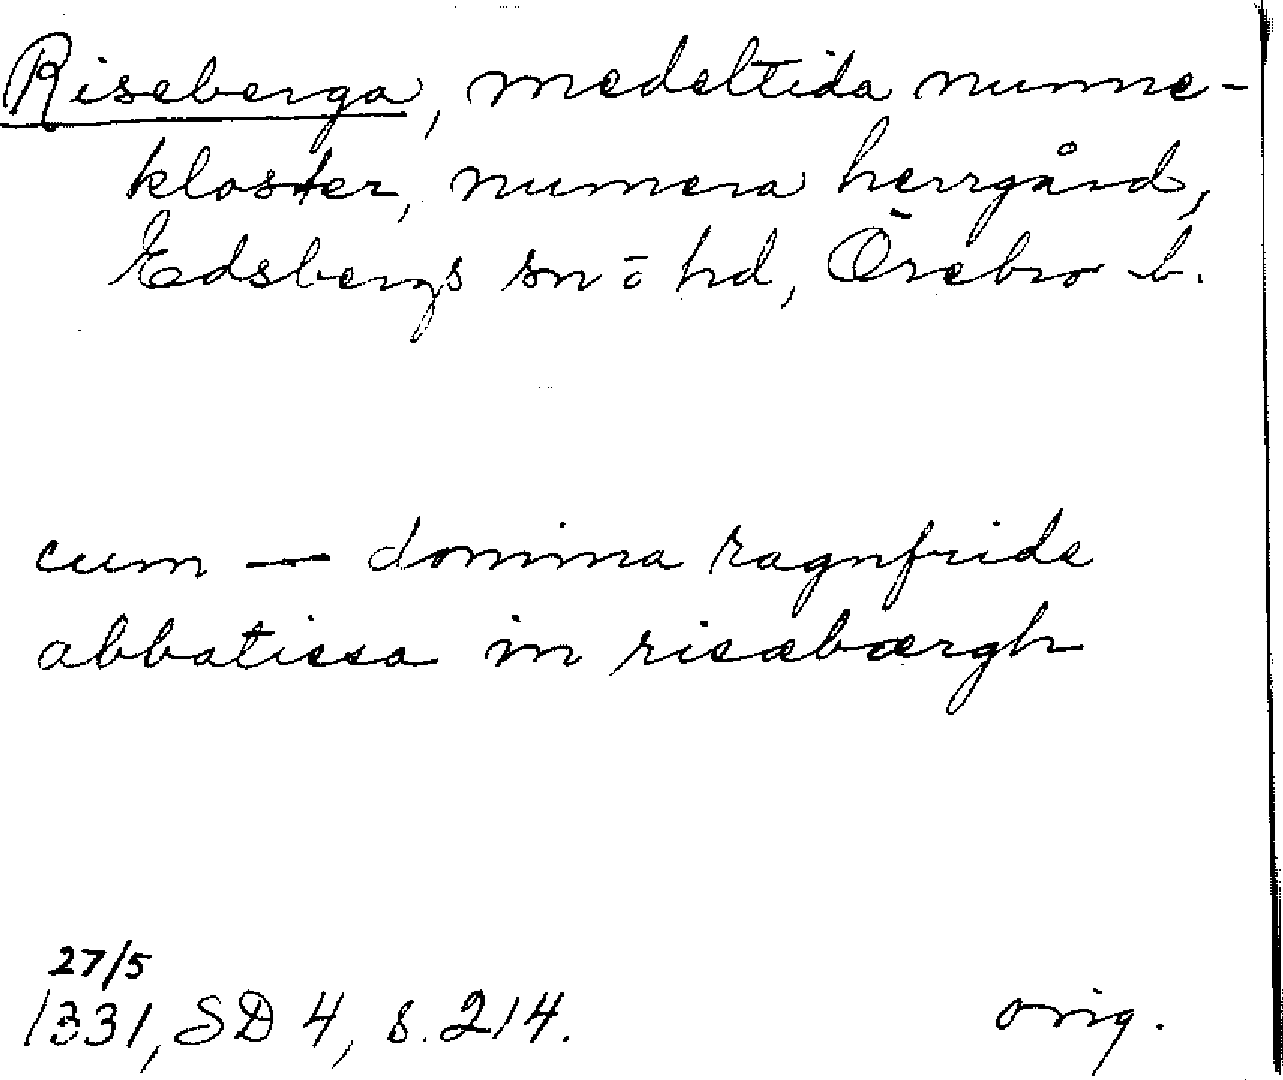 Riseberga, medeltida nunne-
kloster, numera herrgård,
Edsbergs sn o hd, Örebro l.
cum — domina ragnfride
abbatissa in risæbærgh
27/5
1331, SD 4, s. 214.
orig.